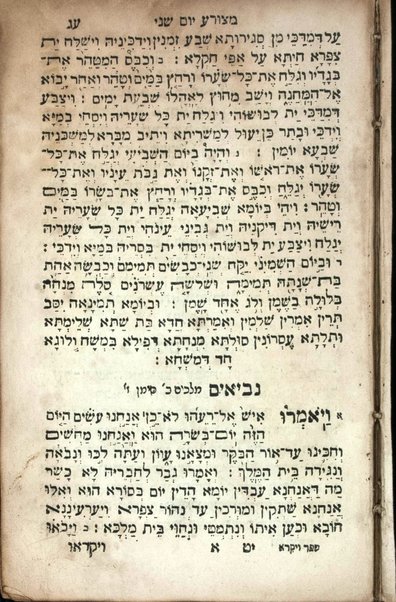 מצורע יום שני עג
עַל דְּמִדַּכֵּי מִן סְגִירוּתָא שְׁבַע זִמְנִין וִידַכִּינֵיהּ וִישַׁלַּח יָת
צִפְּרָא חַיְתָא עַל אַפֵּי חַקְלָא : וְכִבֶּס הַמִּטַּהֵר אֶת־
בְּגָדָיו וְגִלַּח אֶת־כָּל־שְׂעָרוֹ וְרָחַץ בַּמַּיִם וְטָהֵר וְאַחַר יָבוֹא
אֶל־הַמַּחֲנֶה וְיָשַׁב מִחוּץ לְאָהֳלוֹ שִׁבְעַת יָמִים : וִיצַבַּע
דְּמִדַּכֵּי יָת לְבוּשׁוֹהִי וִיגַלַּח יָת כָּל שַׂעֲרֵיהּ וְיַסְחֵי בְמַיָּא
וְיִדְכֵּי וּבָתַר כֵּן יֵעוּל לְמַשְׁרִיתָא וְיָתִיב מִבָּרָא לְמַשְׁכְּנֵיהּ
שִׁבְעָא יוֹמִין : וְהָיָה בַיּוֹם הַשְּׁבִיעִי יְגַלַּח אֶת־כָּל־
שְׂעָרוֹ אֶת־רֹאשׁוֹ וְאֶת־זְקָנוֹ וְאֵת גַּבֹּת עֵינָיו וְאֶת־כָּל־
שְׂעָרוֹ יְגַלֵּחַ וְכִבֶּס אֶת־בְּגָדָיו וְרָחַץ אֶת־בְּשָׂרוֹ בַּמַּיִם
וְטָהֵר : וִיהֵי בְּיוֹמָא שְׁבִיעָאָה יְגַלַּח יָת כָּל שַׂעֲרֵיהּ יָת
רֵישֵׁיהּ וְיָת דִּיקְנֵיהּ וְיָת גְּבִינֵי עֵינֹהִי וְיָת כָּל שַׂעֲרֵיהּ
יְגַלַּח וִיצַבַּע יָת לְבוּשׁוֹהִי וְיַסְחֵי יָת בִּסְרֵיהּ בְּמַיָּא וְיִדְכֵּי :
י וּבַיּוֹם הַשְּׁמִינִי יִקַּח שְׁנֵי־כְבָשִׂים תְּמִימִם וְכַבְשָׂה אַחַת
בַּת־שְׁנָתָהּ תְּמִימָה וּשְׁלֹשָׁה עֶשְׂרֹנִים סֹלֶת מִנְחָה
בְּלוּלָה בַשֶּׁמֶן וְלֹג אֶחָד שָׁמֶן : וּבְיוֹמָא תְּמִינָאָה יִסַּב
תְּרֵין אִמְּרִין שַׁלְמִין וְאִמַּרְתָּא חֲדָא בַּת שַׁתָּא שְׁלֵימְתָּא
וּתְלָתָא עֶסְרוֹנִין סוּלְתָּא מִנְחָתָא דְּפִילָא בִמְשַׁח וְלוּגָא
חַד דְּמִשְׁחָא :
נביאים מלכים ב׳ סימן ז׳
א וַיֹּאמְרוּ אִישׁ אֶל־רֵעֵהוּ לֹא־כֵן אֲנַחְנוּ עֹשִׂים הַיּוֹם
הַזֶּה יוֹם־בְּשֹׂרָה הוּא וַאֲנַחְנוּ מַחְשִׁים
וְחִכִּינוּ עַד־אוֹר הַבֹּקֶר וּמְצָאָנוּ עָווֹן וְעַתָּה לְכוּ וְנָבֹאָה
וְנַגִּידָה בֵּית הַמֶּלֶךְ : וַאֲמָרוּ גְּבַר לְחַבְרֵיהּ לָא כָשַׁר
מָה דַּאֲנַחְנָא עָבְדִין יוֹמָא הָדֵין יוֹם בְּסוֹרָא הוּא וְאִלּוּ
אֲנַחְנָא שַׁתְקִין וּמוֹרְכִין עַד נְהוֹר צַפְרָא וִיעָרְעִינָנָא
חוֹבָא וּכְעַן אִיתוֹ וְנִתְמְטֵי וּנְחַוֵּי בֵּית מַלְכָּא : ב וַיָּבֹאוּ
ספר ויקרא יט א ויקראו